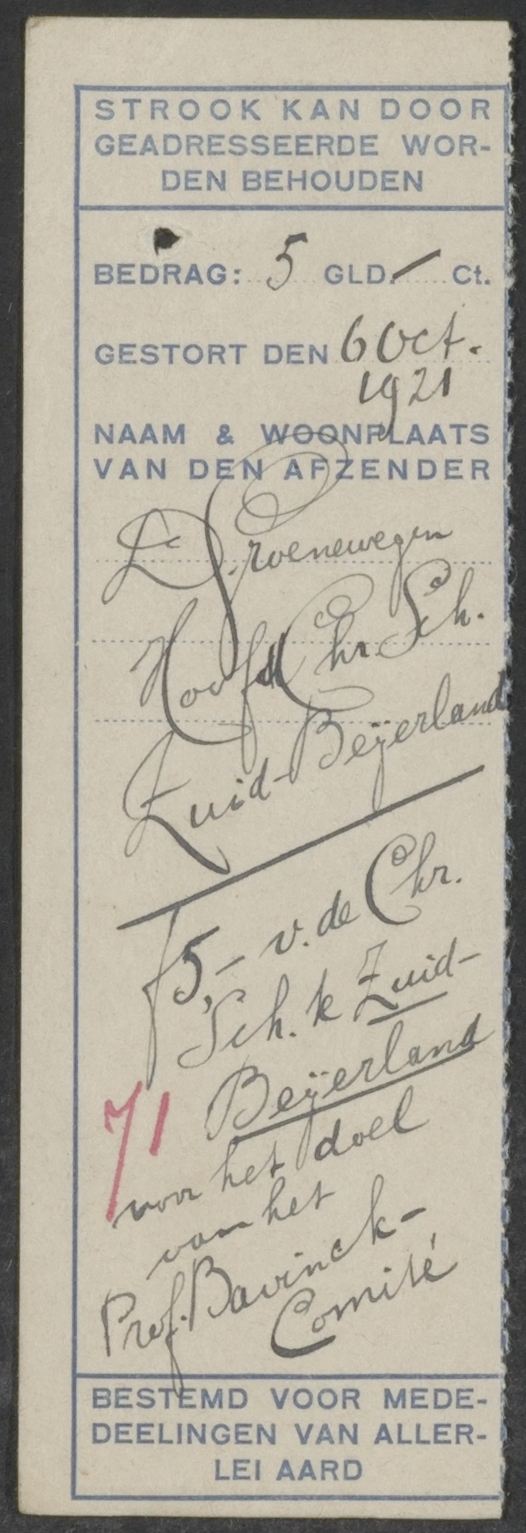 STROOK KAN DOOR
GEADRESSEERDE WOR-
DEN BEHOUDEN
BEDRAG: 5 GLD. — Ct.
GESTORT DEN 6 Oct.
1921
NAAM & WOONPLAATS
VAN DEN AFZENDER
D. Groenewegen
Hoofd Chr. Sch.
Zuid-Beijerland
f 5,- v. de Chr.
Sch. te Zuid-
Beijerland
71
voor het doel
van het
Prof. Bavinck-
Comité
BESTEMD VOOR MEDE-
DEELINGEN VAN ALLER-
LEI AARD